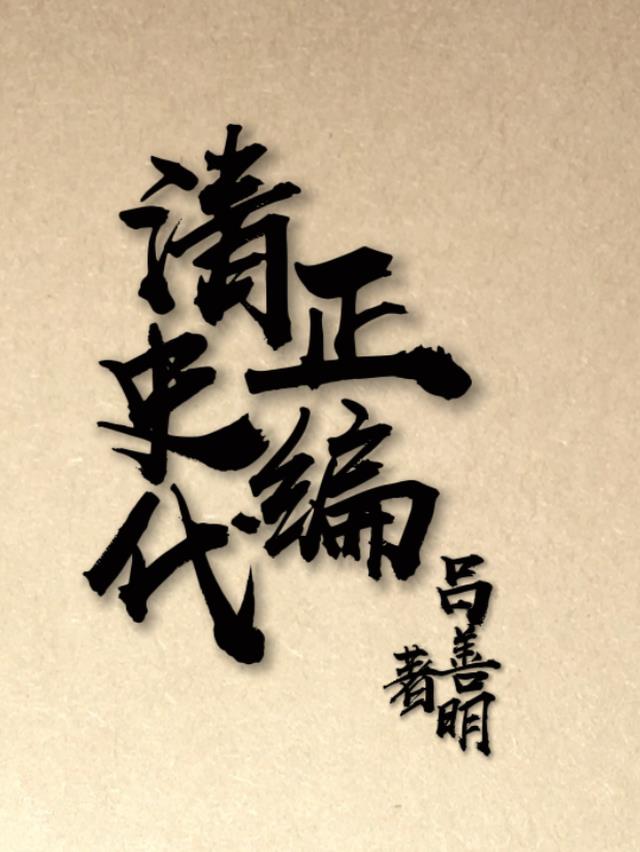 清史代
正编
吕善明
著